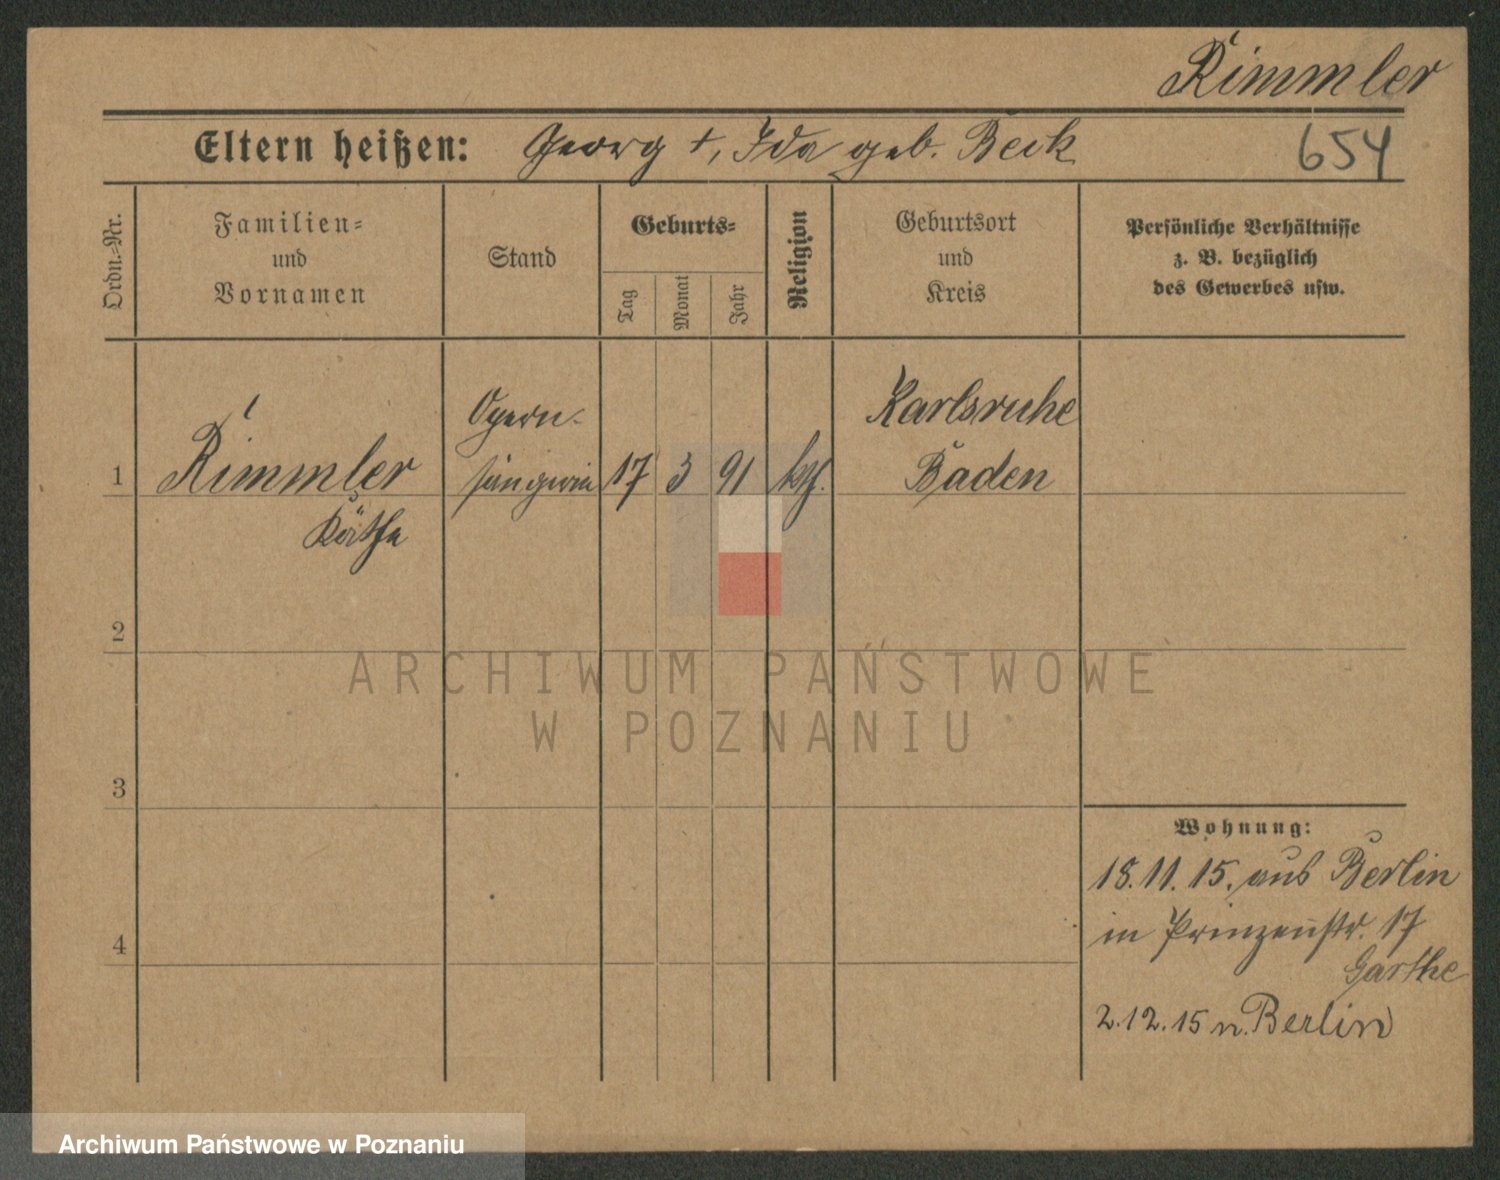 Rimmler
Eltern heißen: Georg +, Ida geb. Beck
654
Ordn.-Nr.
Familien-
und
Vornamen
Stand
Geburts-
Tag
Monat
Jahr
Religion
Geburtsort
und
Kreis
Persönliche Verhältnisse
z. B. bezüglich
des Gewerbes usw.
1
Rimmler
Käthe
Opern-
sängerin
17
3
91
kth.
Karlsruhe
Baden
2
3
4
Wohnung:
18.11.15. aus Berlin
in Prinzenstr. 17
Garthe
2.12.15 n. Berlin
ARCHIWUM PAŃSTWOWE
W POZNANIU
Archiwum Państwowe w Poznaniu